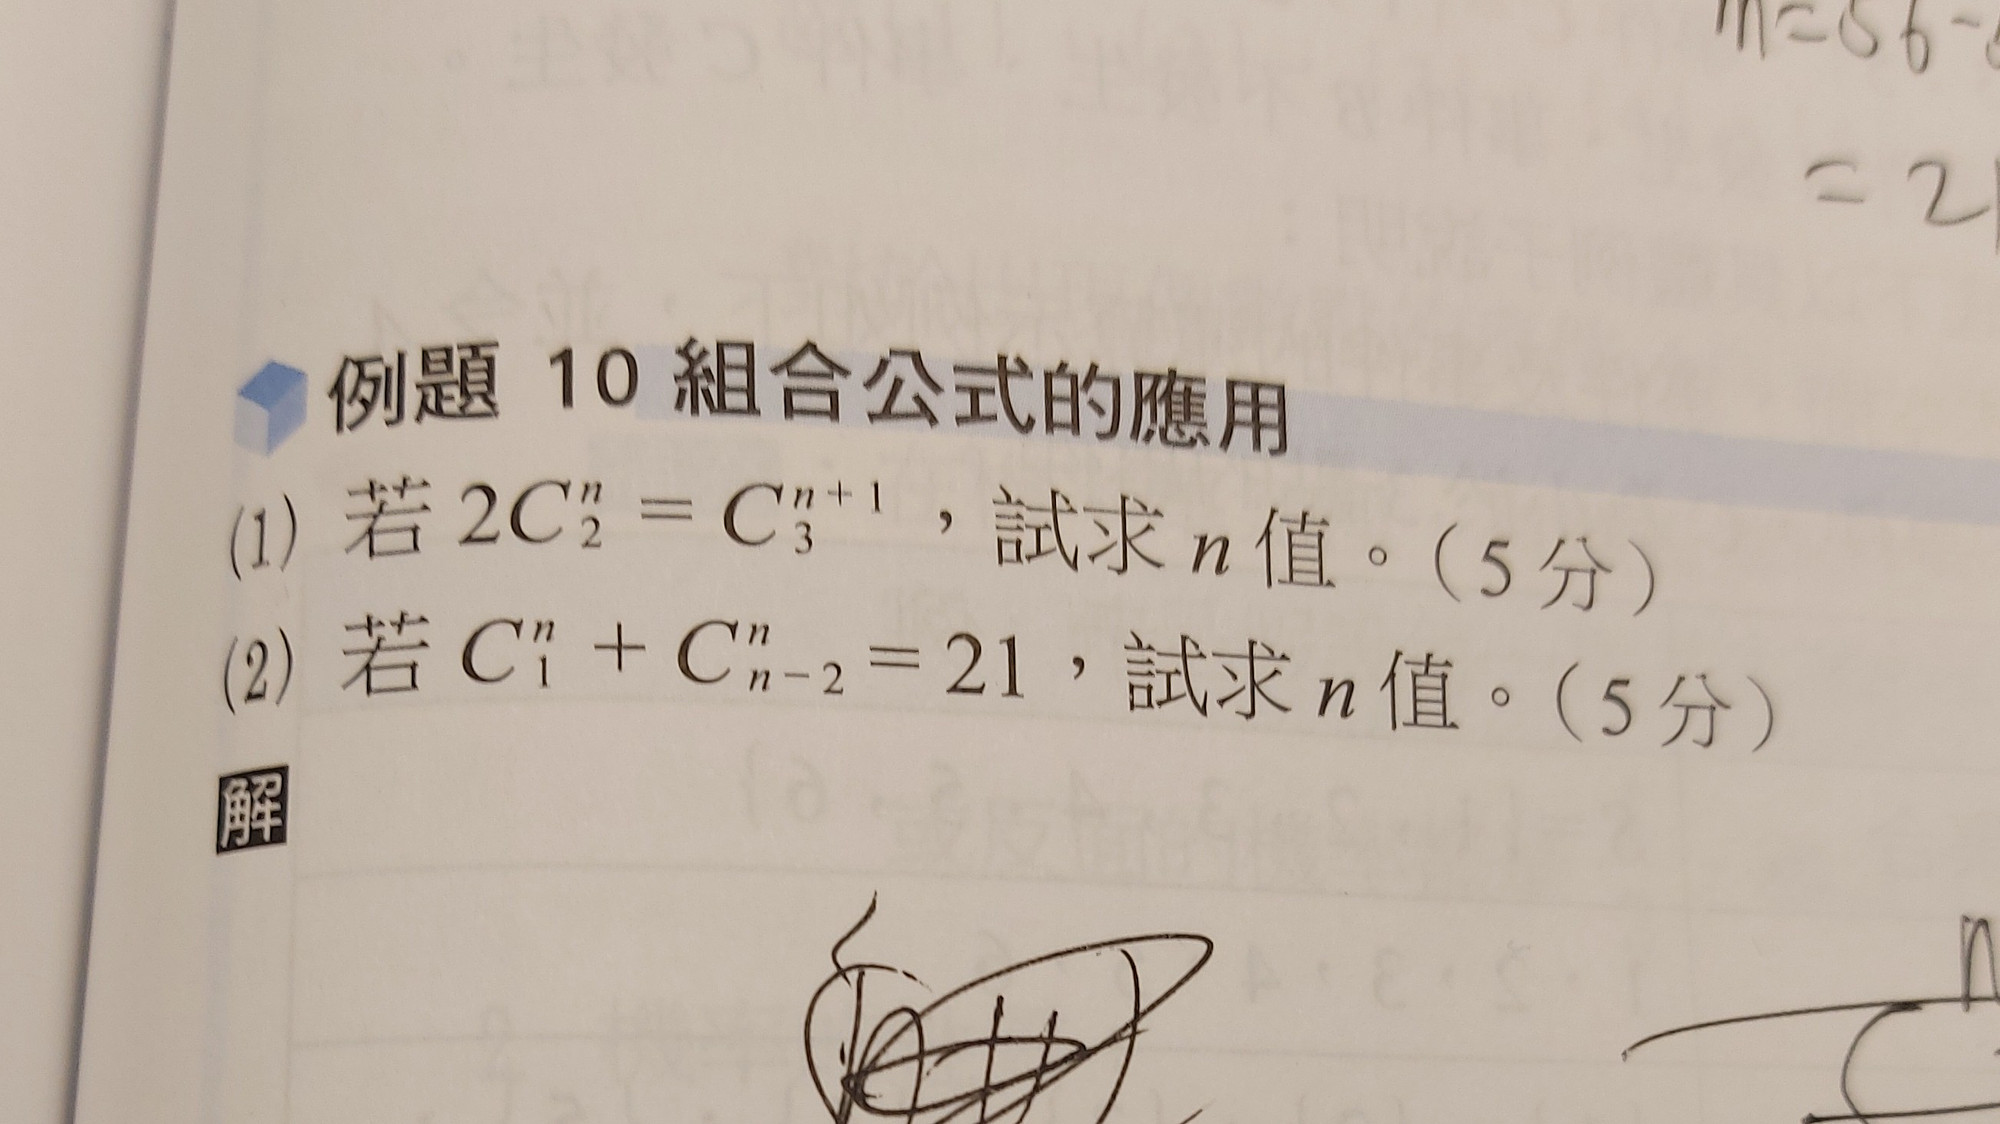 = 2
例題 10 組合公式的應用
(1) 若 $2C_2^n = C_3^{n+1}$，試求 n 值。（5 分）
(2) 若 $C_1^n + C_{n-2}^n = 21$，試求 n 值。（5 分）
解
n